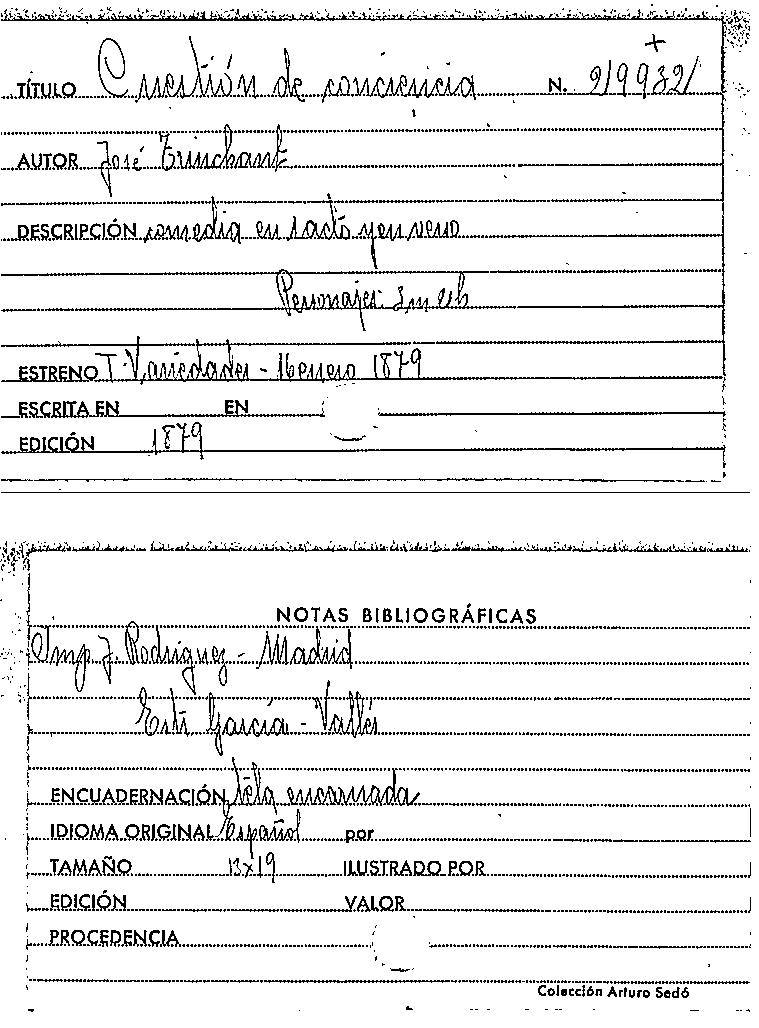 +
TÍTULO Cuestión de conciencia N. 2/9932/
AUTOR José Trinchant
DESCRIPCIÓN comedia en 1 acto y en verso
Personajes: 3m
ESTRENO T. Variedades - 16 enero 1879
ESCRITA EN EN
EDICIÓN 1879
NOTAS BIBLIOGRÁFICAS
Imp J. Rodriguez - Madrid
García - Vallés
ENCUADERNACIÓN tela encarnada
IDIOMA ORIGINAL Español por
TAMAÑO 13x19 ILUSTRADO POR
EDICIÓN VALOR
PROCEDENCIA
Colección Arturo Sedó